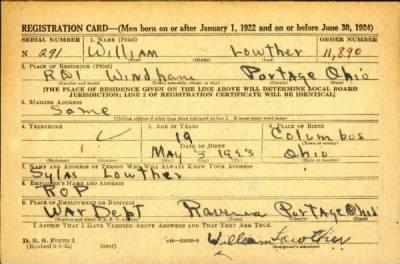 REGISTRATION CARD—(Men born on or after January 1, 1922 and on or before June 30, 1924)
SERIAL NUMBER 1. NAME (Print) ORDER NUMBER
N 291 William Lowther 11,890
(First) (Middle) (Last)
2. PLACE OF RESIDENCE (Print)
RD1 Windham Portage Ohio
[THE PLACE OF RESIDENCE GIVEN ON THE LINE ABOVE WILL DETERMINE LOCAL BOARD
JURISDICTION; LINE 2 OF REGISTRATION CERTIFICATE WILL BE IDENTICAL]
3. MAILING ADDRESS
Same
4. TELEPHONE 5. AGE IN YEARS 6. PLACE OF BIRTH
19 Columbus
DATE OF BIRTH
May 3 Ohio
7. NAME AND ADDRESS OF PERSON WHO WILL ALWAYS KNOW YOUR ADDRESS
Sylas Lowther
8. EMPLOYER'S NAME AND ADDRESS
ROP
9. PLACE OF EMPLOYMENT OR BUSINESS
War Dept Ravenna Portage Ohio
I AFFIRM THAT I HAVE VERIFIED ABOVE ANSWERS AND THAT THEY ARE TRUE.
D. S. S. FORM 1
(Revised 6-1-42)
William Lowther
(Registrant's signature)